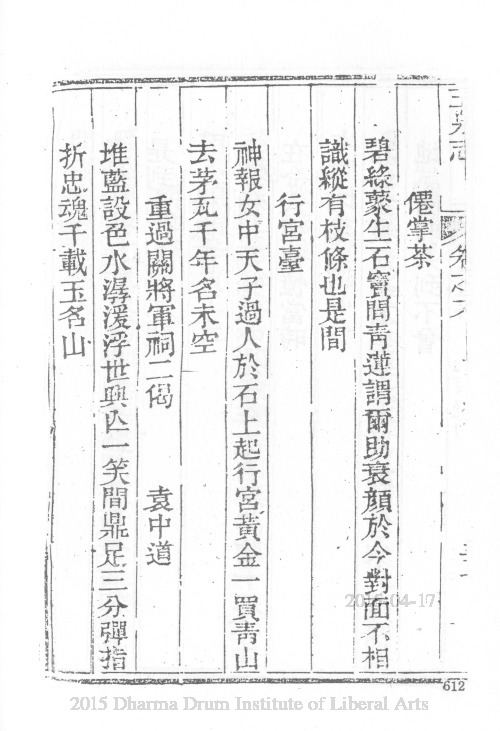 玉泉志
卷之六
僊掌茶
碧綠藂生石竇間青蓮謂爾助衰顏於今對面不相
識縱有枝條也是閒
行宮臺
神報女中天子過人於石上起行宮黃金一買青山
去茅瓦千年名未空
重過關將軍祠二偈 袁中道
堆藍設色水潺湲浮世興亾一笑間鼎足三分彈指
折忠魂千載玉名山
612
2015 Dharma Drum Institute of Liberal Arts